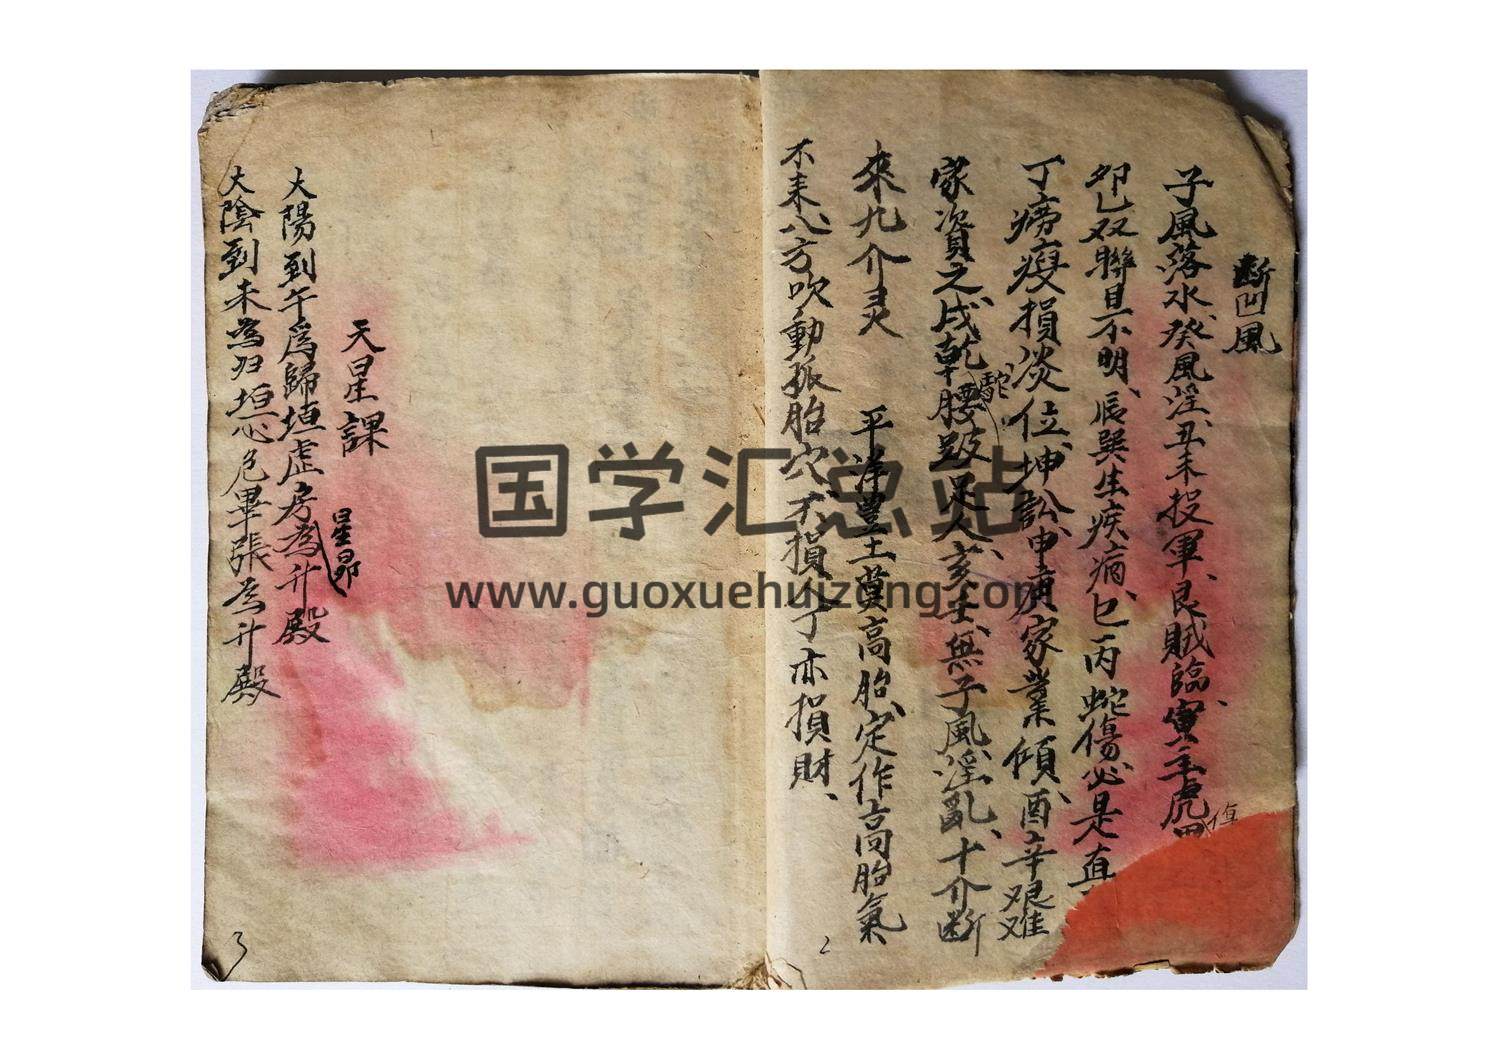 断凹風
子風落水、癸風淫、丑未投軍、艮賊臨、寅主虎
伤
卯乙双聯目不明、辰巽生疾病、巳丙蛇傷必是真
丁痨瘦損淡位、坤訟申庚家業傾、酉辛艰难
家資乏、戌乾腰跛足人、亥壬無子風淫乱、十介断
來九介灵
平洋豊土莫高胎、定作高胎氣
不来、八方吹動孤胎穴、不損人丁亦損財、
2
天星課
大陽到午為歸垣虚房為升殿
星昴
大陰到未為归垣心危畢張為升殿
3
国学汇总站
www.guoxuehuizong.com